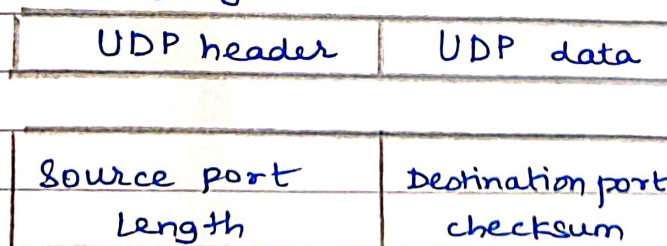 UDP header UDP data
Source port Destination port
Length checksum